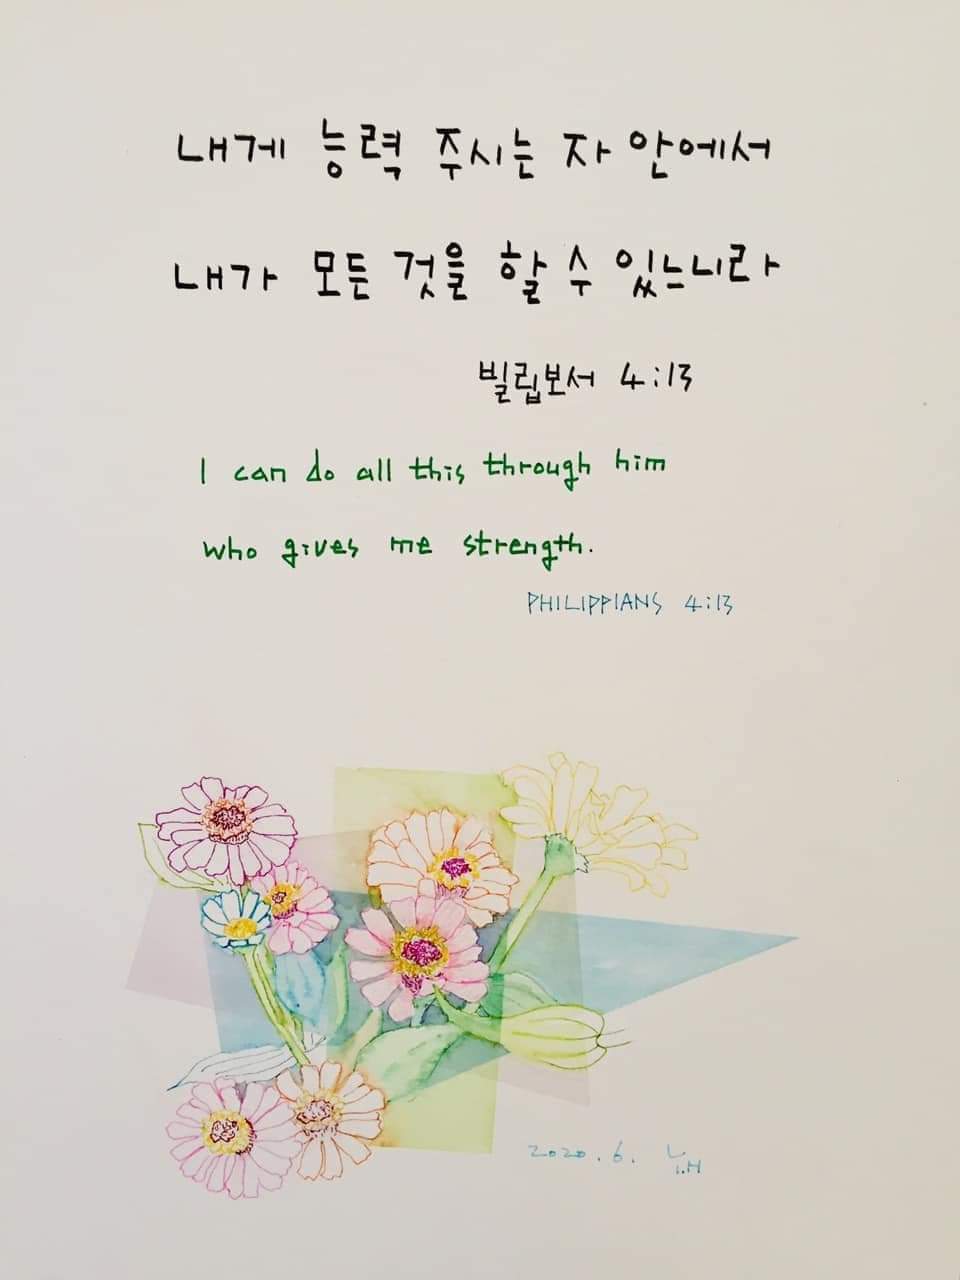 내게 능력 주시는 자 안에서
내가 모든 것을 할 수 있느니라
빌립보서 4:13
I can do all this through him
who gives me strength.
PHILIPPIANS 4:13
2020.6.